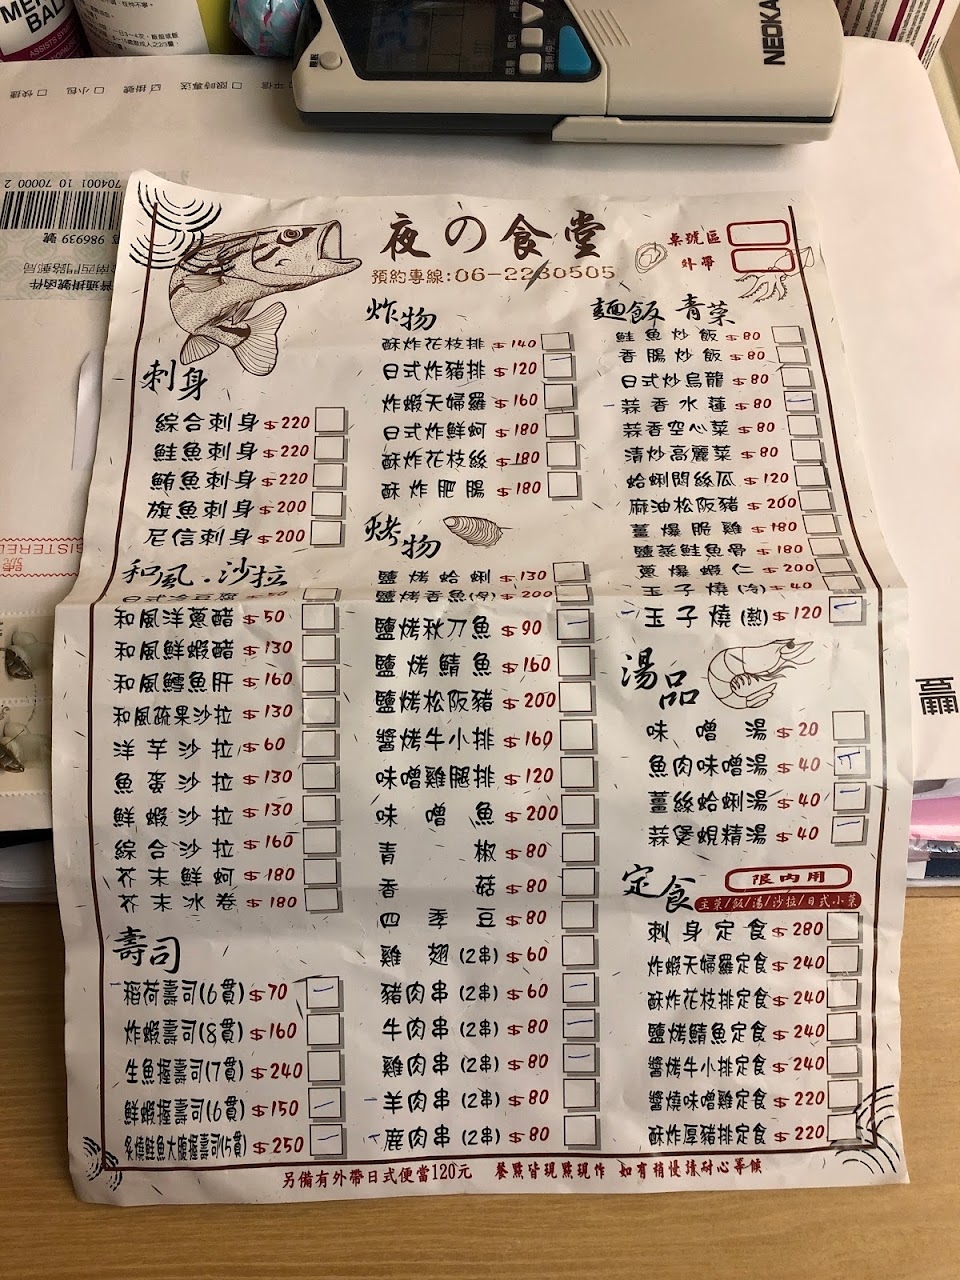 NEOKA
快捷 □ 小包 □ 掛號 ☑ 限時專送 □
704001 10 70000 2
986939 號
普通掛號函件
夜の食堂
預約專線:06-2230505
桌號區
外帶
刺身
綜合刺身 $220
鮭魚刺身 $220
鮪魚刺身 $220
旗魚刺身 $200
尼信刺身 $200
和風.沙拉
和風洋蔥醋 $50
和風鮮蝦醋 $130
和風鱈魚肝 $160
和風蔬果沙拉 $130
洋芋沙拉 $60
魚蛋沙拉 $130
鮮蝦沙拉 $130
綜合沙拉 $160
芥末鮮蚵 $180
芥末冰卷 $180
壽司
稻荷壽司(6貫) $70
炸蝦壽司(8貫) $160
生魚握壽司(7貫) $240
鮮蝦握壽司(6貫) $150
炙燒鮭魚大腹握壽司(5貫) $250
炸物
酥炸花枝排 $140
日式炸豬排 $120
炸蝦天婦羅 $160
日式炸鮮蚵 $180
酥炸花枝絲 $180
酥炸肥腸 $180
烤物
鹽烤蛤蜊 $130
鹽烤香魚(冷) $200
鹽烤秋刀魚 $90
鹽烤鯖魚 $160
鹽烤松阪豬 $200
醬烤牛小排 $160
味噌雞腿排 $120
味噌魚 $200
青椒 $80
香菇 $80
四季豆 $80
雞翅(2串) $60
豬肉串(2串) $60
牛肉串(2串) $80
雞肉串(2串) $80
羊肉串(2串) $80
鹿肉串(2串) $80
麵飯 青菜
鮭魚炒飯 $80
香腸炒飯 $80
日式炒烏龍 $80
蒜香水蓮 $80
蒜香空心菜 $80
清炒高麗菜 $80
蛤蜊悶絲瓜 $120
麻油松阪豬 $200
薑爆脆雞 $180
鹽蒸鮭魚骨 $180
蔥爆蝦仁 $200
玉子燒(冷) $40
玉子燒(熱) $120
湯品
味噌湯 $20
魚肉味噌湯 $40
薑絲蛤蜊湯 $40
蒜煲蜆精湯 $40
定食
限內用
主菜/飯/湯/沙拉/日式小菜
刺身定食 $280
炸蝦天婦羅定食 $240
酥炸花枝排定食 $240
鹽烤鯖魚定食 $240
醬烤牛小排定食 $240
醬燒味噌雞定食 $220
酥炸厚豬排定食 $220
另備有外帶日式便當120元 餐點皆現點現作 如有稍慢請耐心等候